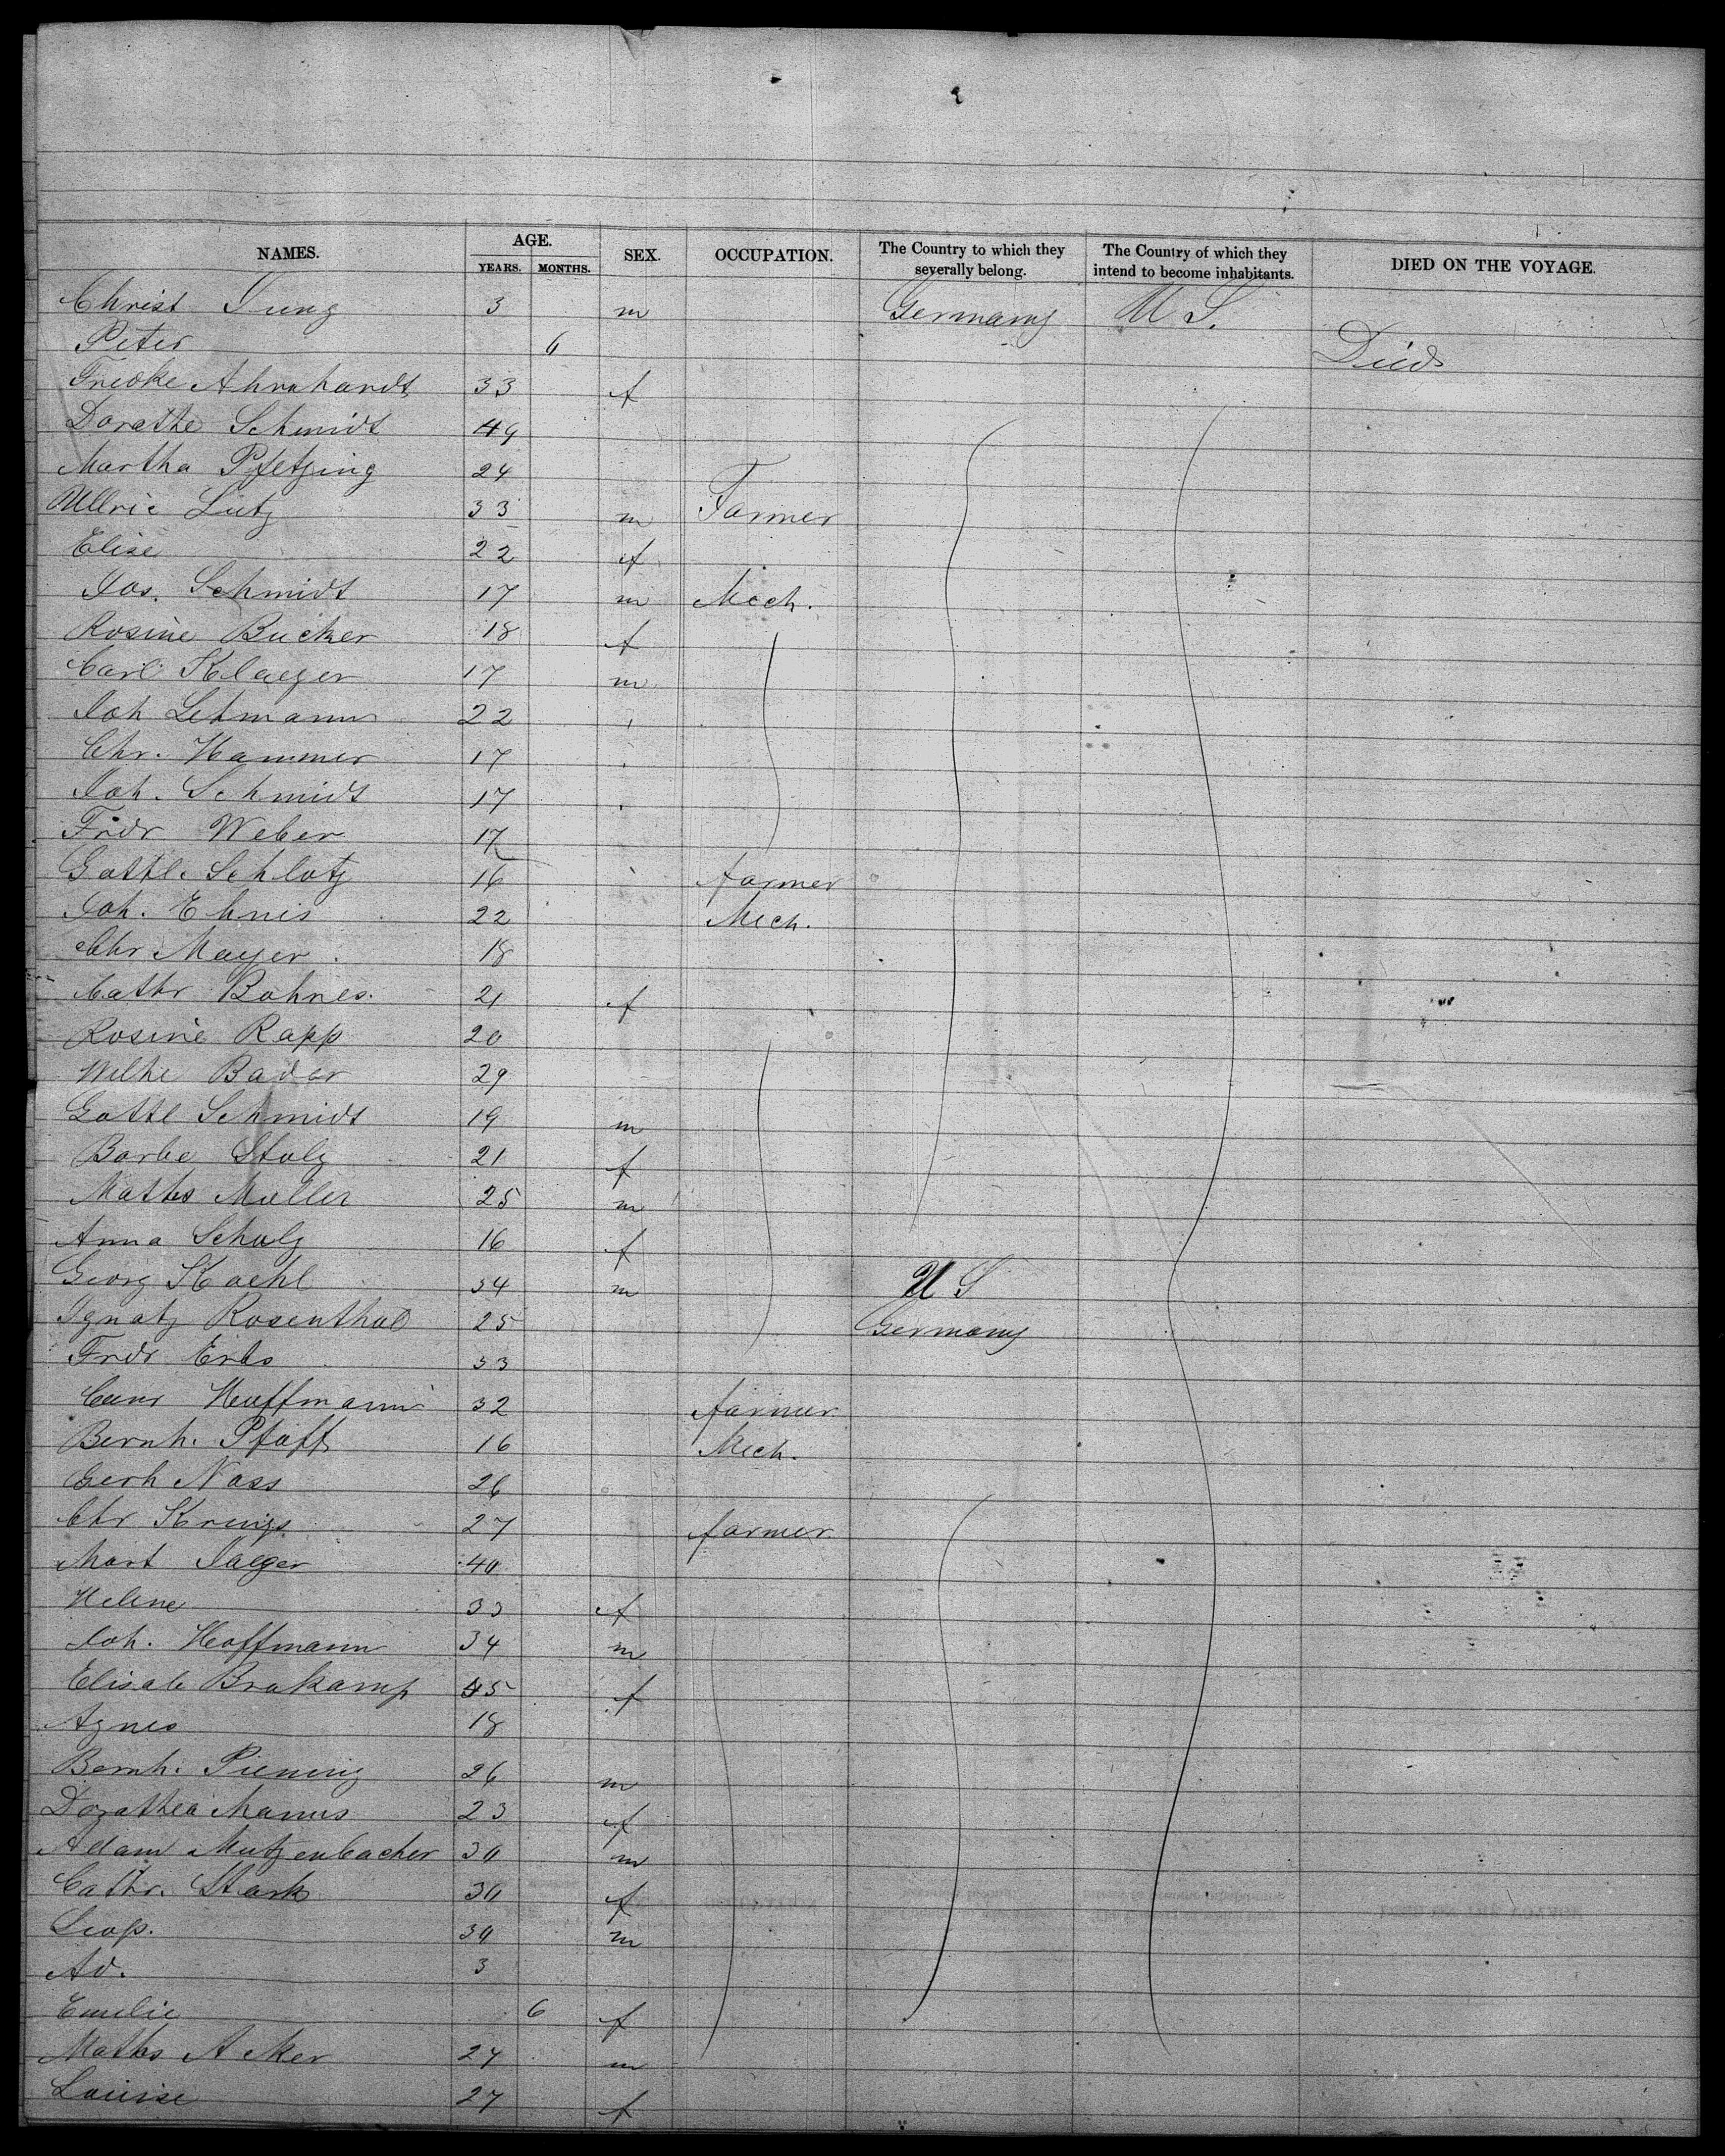 NAMES. AGE. SEX. OCCUPATION. The Country to which they severally belong. The Country of which they intend to become inhabitants. DIED ON THE VOYAGE.
YEARS. MONTHS.
Christ Jung 3 m Germany U S.
Peter 6 Died
Friedke Ahrnhardt 33 f
Dorathe Schmidt 49
Martha Pfetzing 24
Ullric Lutz 33 m Farmer
Elise 22 f
Jos. Schmidt 17 m Mech.
Rosine Bucker 18 f
Carl Klaeger 17 m
Joh Lehmann 22 "
Chr. Hammer 17 "
Joh. Schmidt 17 "
Fridr Weber 17
Gottl. Schlotz 16 " farmer
Joh. Ehnis 22 Mech.
Chr Mayer 18
Cathr Bohnes. 21 f
Rosine Rapp 20
Wilhe Bader 29
Gottl Schmidt 19 m
Barbe Stolz 21 f
Maths Muller 25 m
Anna Schulz 16 f
Georg Koehl 34 m U S
Ignatz Rosenthal 25 Germany
Fridr Erbs 33
Hoffmann 32 farmer
Bernh. Pfaff 16 Mech.
Gerh Nass 26
Chr Krings 27 farmer
Mart Jaeger 40
Helene 33 f
Joh. Hoffmann 34 m
Elisab Brakamp 45 f
Agnes 18
Bernh. Piening 26 m
Dorathea Manus 23 f
Adam Mutzenbacher 30 m
Cathr. Stark 30 f
Leop. 30 m
Ad. 3
Emelie 6 f
Maths Acker 27 m
Louise 27 f